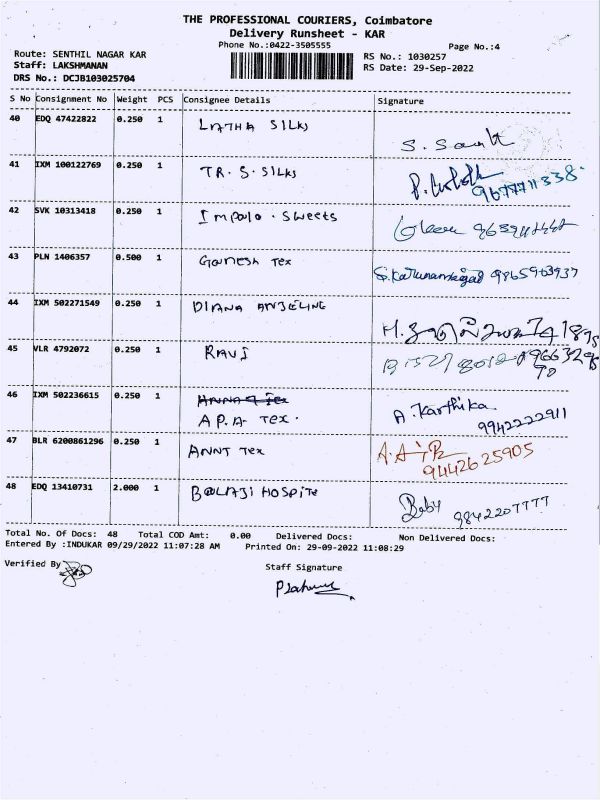 THE PROFESSIONAL COURIERS, Coimbatore
Delivery Runsheet - KAR
Phone No.:0422-3505555
Page No.:4
Route: SENTHIL NAGAR KAR
Staff: LAKSHMANAN
DRS No.: DCJB103025704
RS No.: 1030257
RS Date: 29-Sep-2022
S No Consignment No Weight PCS Consignee Details Signature
40 EDQ 47422822 0.250 1 LATHA SILKS
41 IXM 100122769 0.250 1 T.R.S. SILKS 9677711338
42 SVK 10313418 0.250 1 Sweets
43 PLN 1406357 0.500 1 GANESH Tex 9865963937
44 IXM 502271549 0.250 1 DIANA ANJELINE
45 VLR 4792072 0.250 1 RAVI
46 IXM 502236615 0.250 1 A.P.A. Tex. A. Karthika 9942222911
47 BLR 6200861296 0.250 1 ANNT Tex 9442625905
48 EDQ 13410731 2.000 1 BALAJI HOSPITE Baby 9842207777
Total No. Of Docs: 48 Total COD Amt: 0.00 Delivered Docs: Non Delivered Docs:
Entered By :INDUKAR 09/29/2022 11:07:28 AM Printed On: 29-09-2022 11:08:29
Verified By
Staff Signature